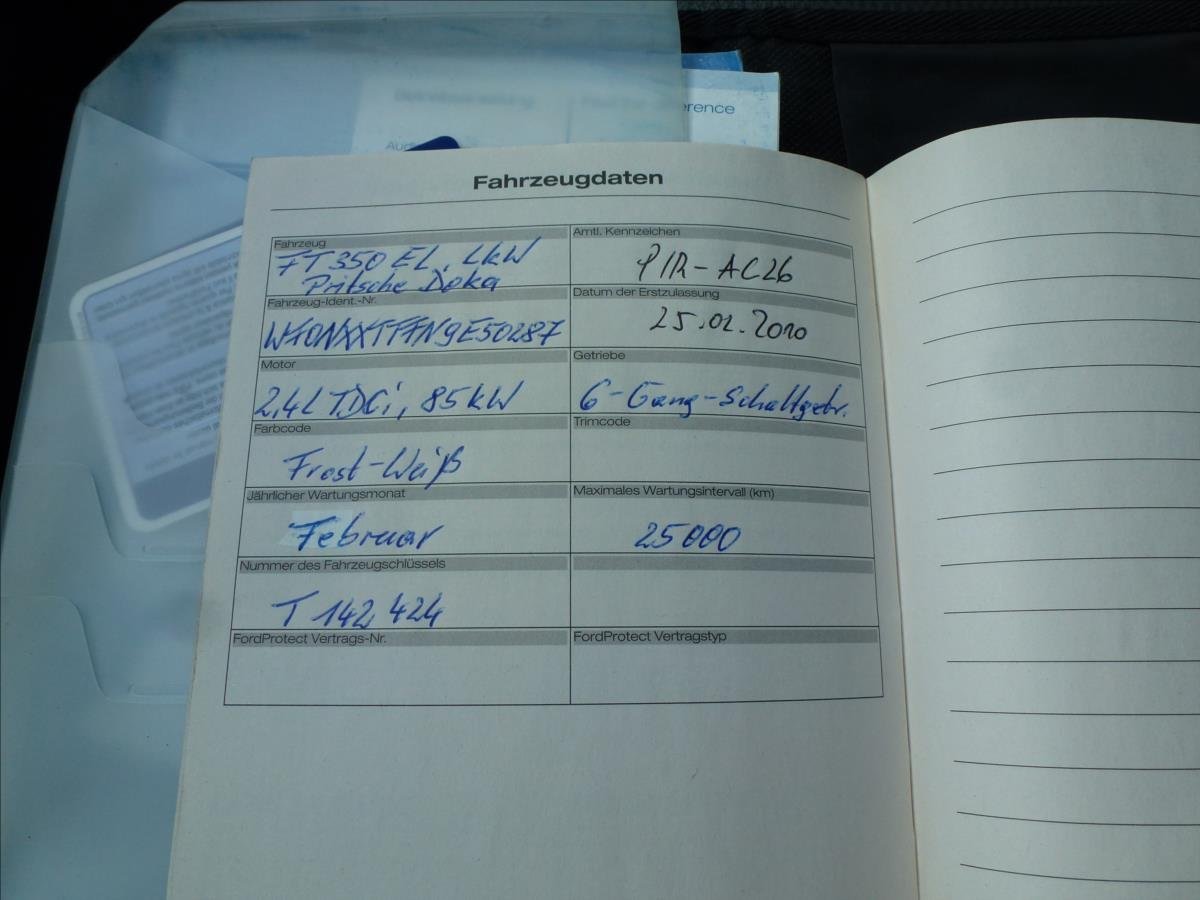 erence
Fahrzeugdaten
Fahrzeug
FT 350 EL, LkW
Pritsche Doka
Amtl. Kennzeichen
PIR-AC26
Fahrzeug-Ident.-Nr.
WF0NXXTTFN9E50287
Datum der Erstzulassung
25.02.2010
Motor
2,4L TDCi, 85 kW
Getriebe
6-Gang-Schaltgetr.
Farbcode
Frost-Weiß
Trimcode
Jährlicher Wartungsmonat
Februar
Maximales Wartungsintervall (km)
25000
Nummer des Fahrzeugschlüssels
T 142 424
FordProtect Vertrags-Nr.
FordProtect Vertragstyp